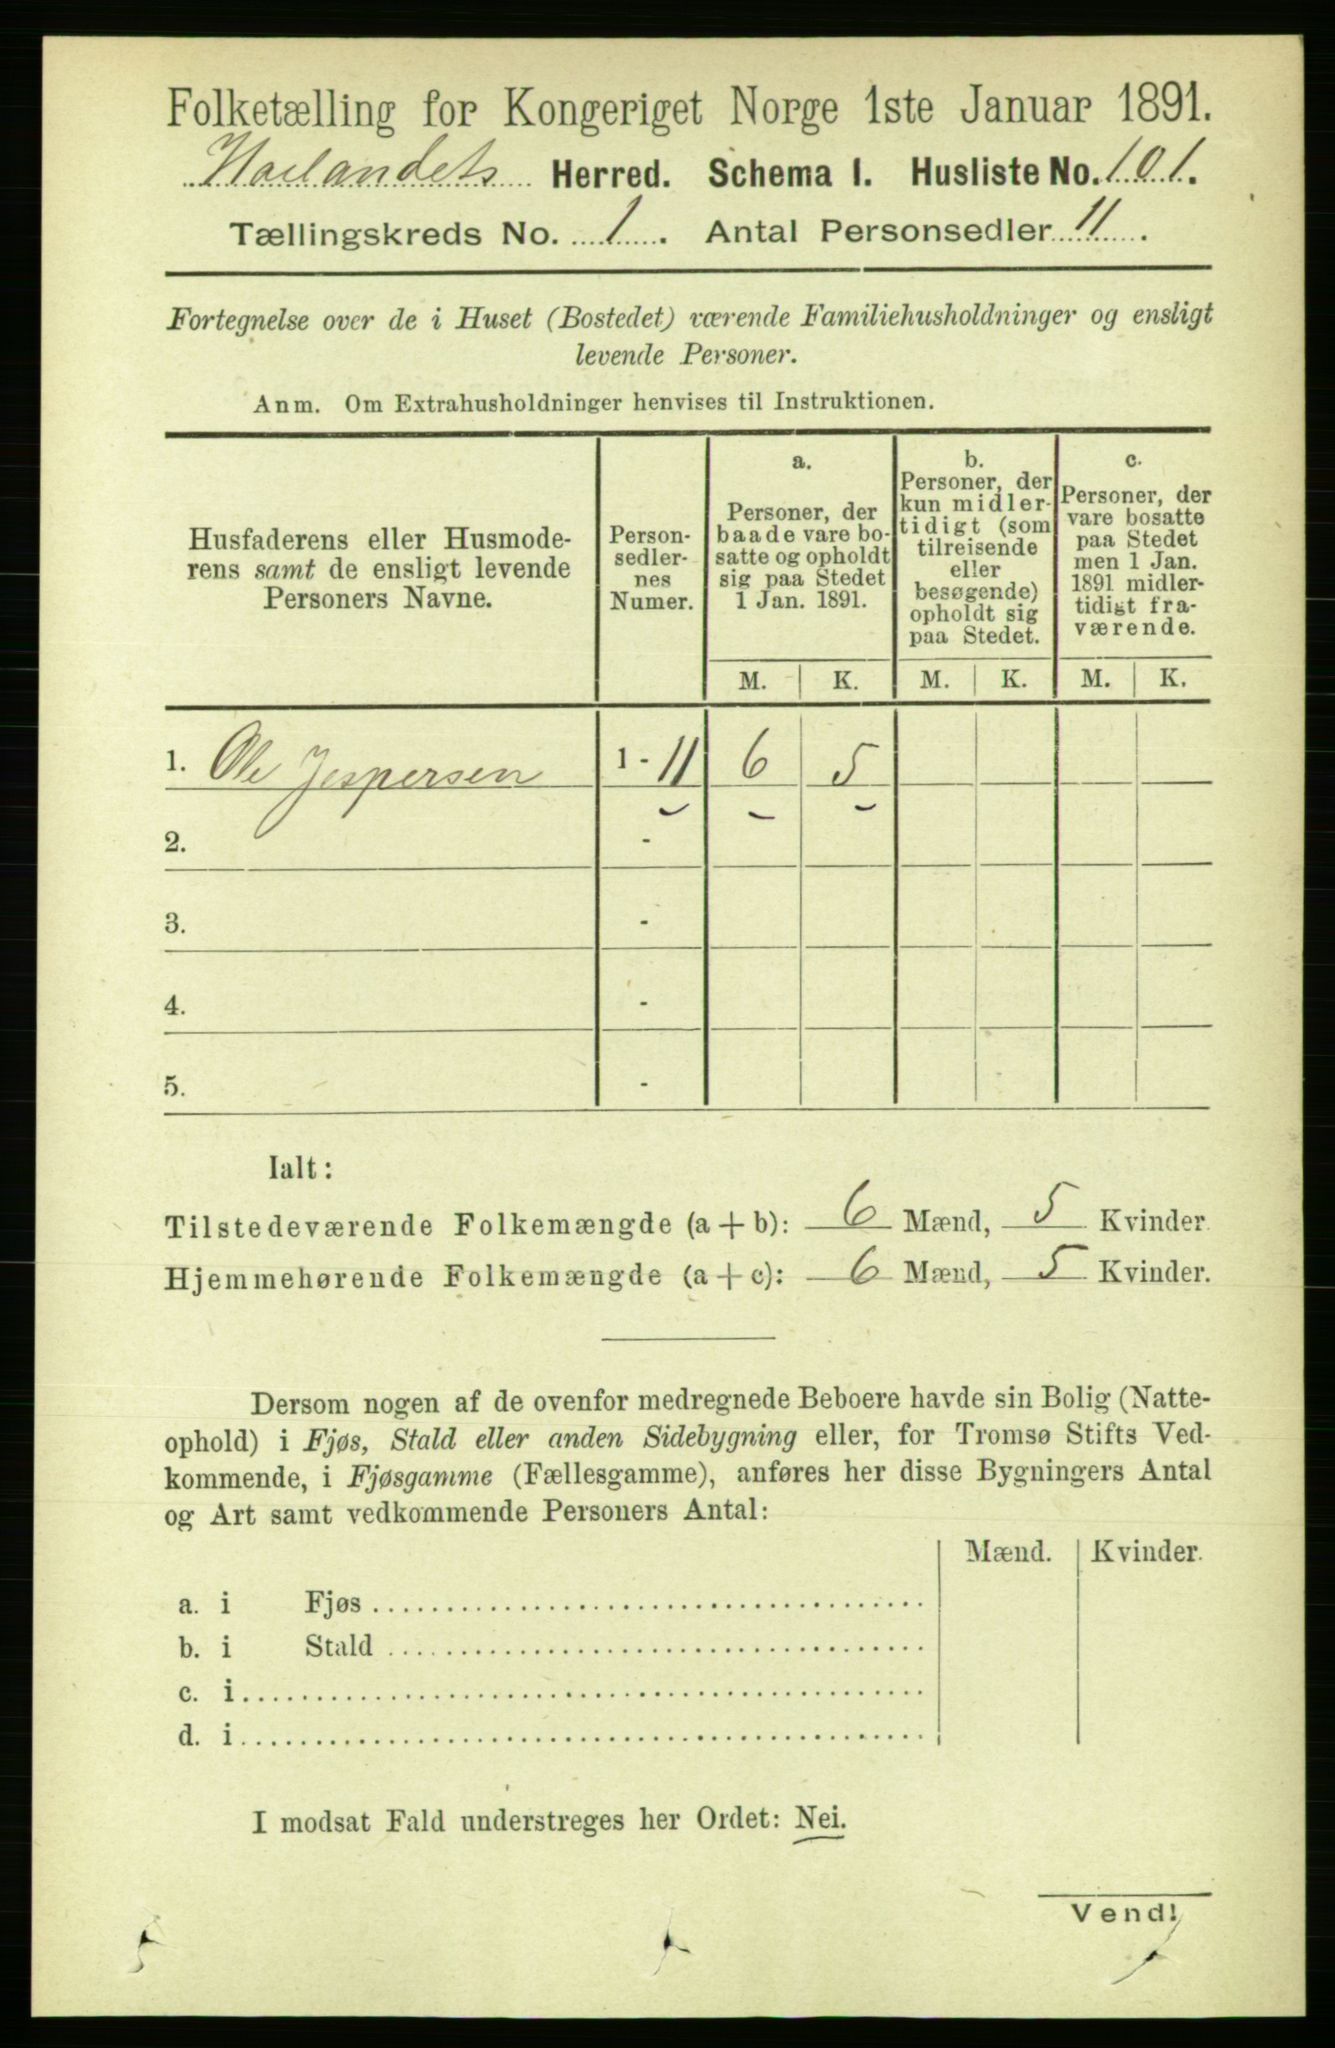 Folketælling for Kongeriget Norge 1ste Januar 1891.
Herred. Schema 1. Husliste No. 101.
Tællingskreds No. 1. Antal Personsedler 11.
Fortegnelse over de i Huset (Bostedet) værende Familiehusholdninger og ensligt
levende Personer.
Anm. Om Extrahusholdninger henvises til Instruktionen.
Husfaderens eller Husmode-
rens samt de ensligt levende
Personers Navne.
Person-
sedler-
nes
Numer.
a.
Personer, der
baade vare bo-
satte og opholdt
sig paa Stedet
1 Jan. 1891.
b.
Personer, der
kun midler-
tidigt (som
tilreisende
eller
besøgende)
opholdt sig
paa Stedet.
c.
Personer, der
vare bosatte
paa Stedet
men 1 Jan.
1891 midler-
tidigt fra-
værende.
M. K. M. K. M. K.
1. Ole Jespersen 1 - 11 6 5
2. -
3. -
4. -
5. -
Ialt:
Tilstedeværende Folkemængde (a + b): 6 Mænd, 5 Kvinder.
Hjemmehørende Folkemængde (a + c): 6 Mænd, 5 Kvinder.
Dersom nogen af de ovenfor medregnede Beboere havde sin Bolig (Natte-
ophold) i Fjøs, Stald eller anden Sidebygning eller, for Tromsø Stifts Ved-
kommende, i Fjøsgamme (Fællesgamme), anføres her disse Bygningers Antal
og Art samt vedkommende Personers Antal:
Mænd. Kvinder.
a. i Fjøs
b. i Stald
c. i
d. i
I modsat Fald understreges her Ordet: Nei.
Vend!